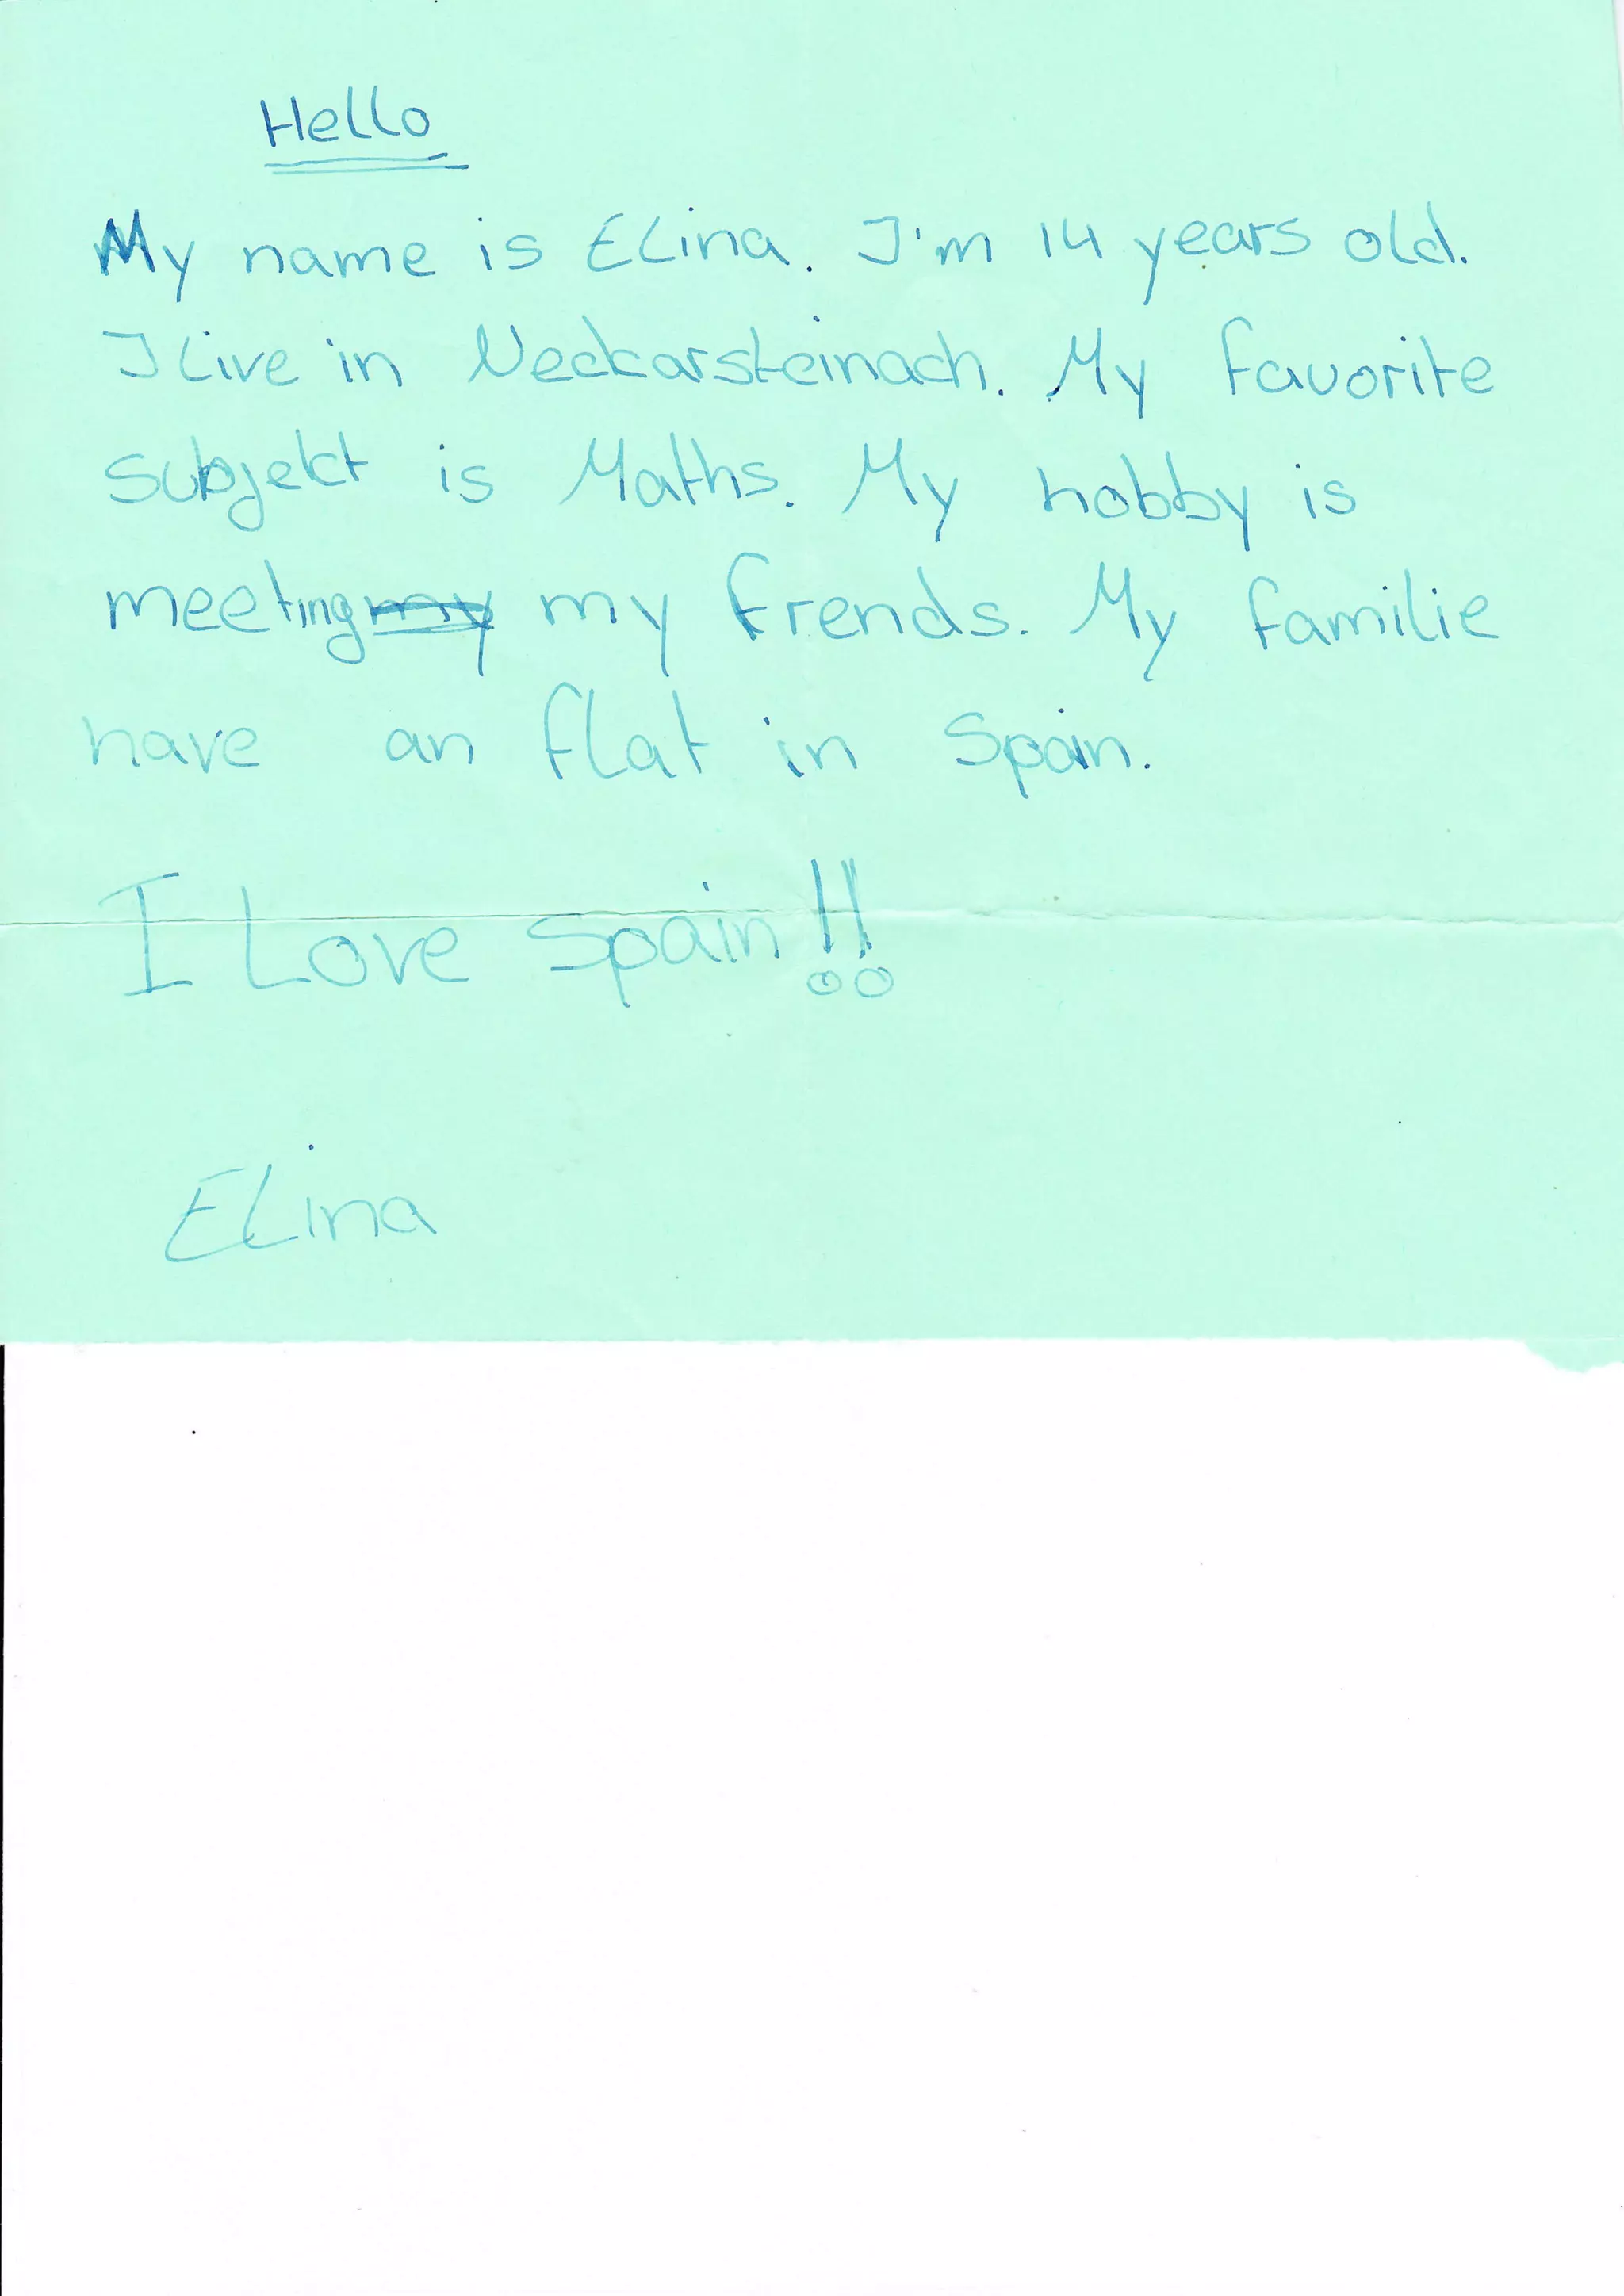 Hello
My name is Elina. I'm 14 years old.
I live in Neckarsteinach. My favorite
subjekt is Maths. My hobby is
meeting my my frends. My familie
have an flat in Spain.
I Love Spain!!
Elina